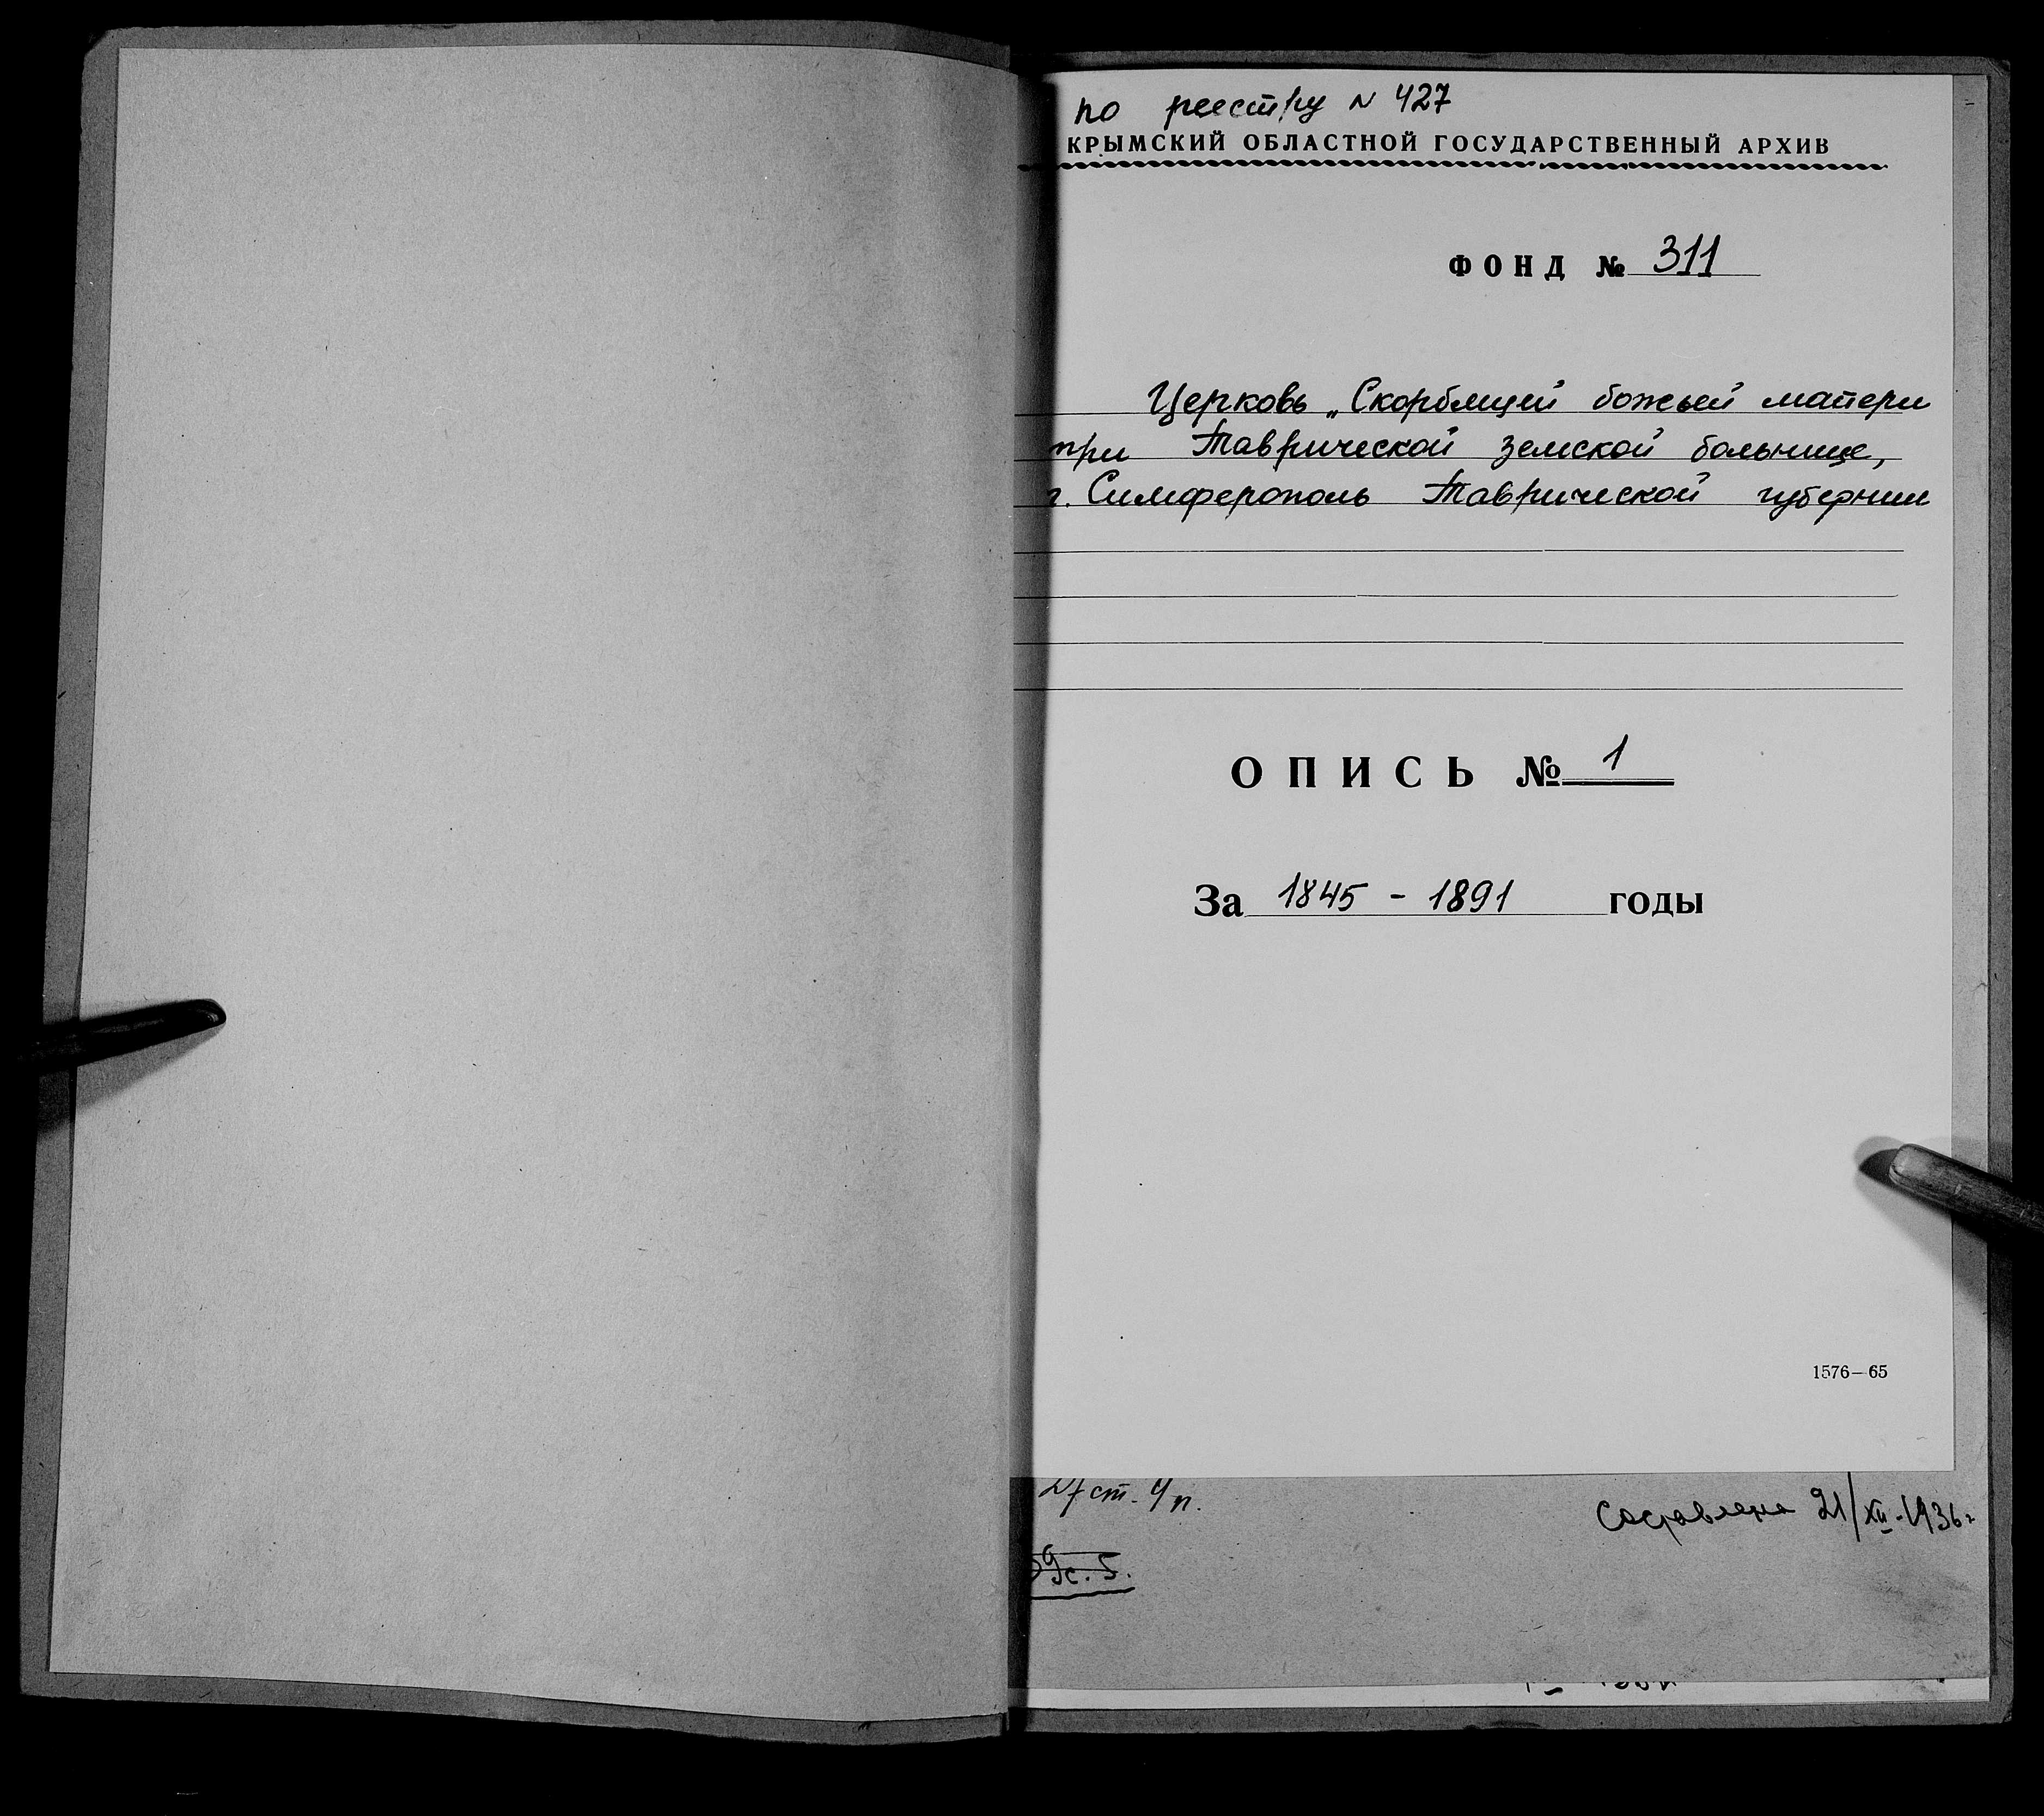 по реестру N 427
КРЫМСКИЙ ОБЛАСТНОЙ ГОСУДАРСТВЕННЫЙ АРХИВ
ФОНД № 311
Церковь „Скорбящей божьей матери
при Таврической земской больнице,
г. Симферополь Таврической губернии
ОПИСЬ № 1
За 1845 - 1891 годы
1576—65
Составлена 21/XII-1936г